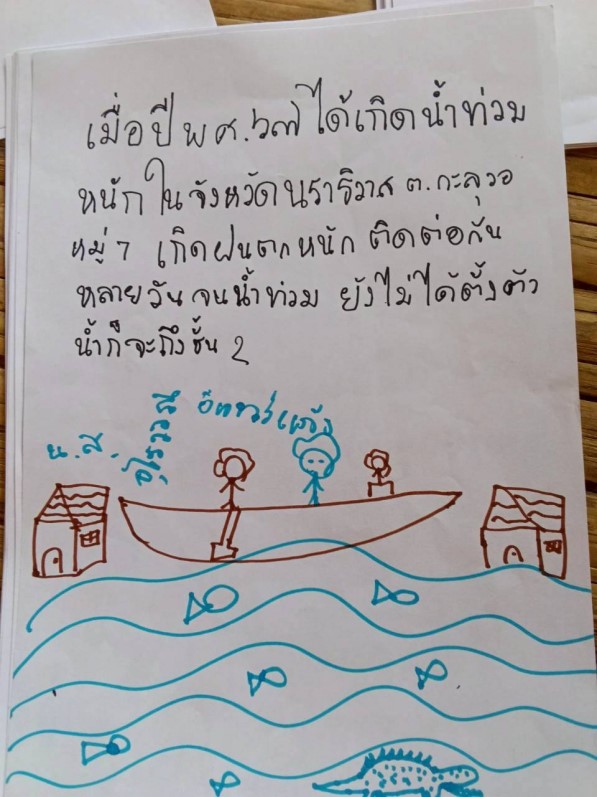 เมื่อปี พ ศ. ๖๗ ได้เกิดน้ำท่วม
หนัก ในจังหวัดนราธิวาส ต. กะลุวอ
หมู่ 7 เกิดฝนตกหนัก ติดต่อกัน
หลายวัน จนน้ำท่วม ยังไม่ได้ตั้งตัว
น้ำก็จะถึงชั้น 2
น.ส.